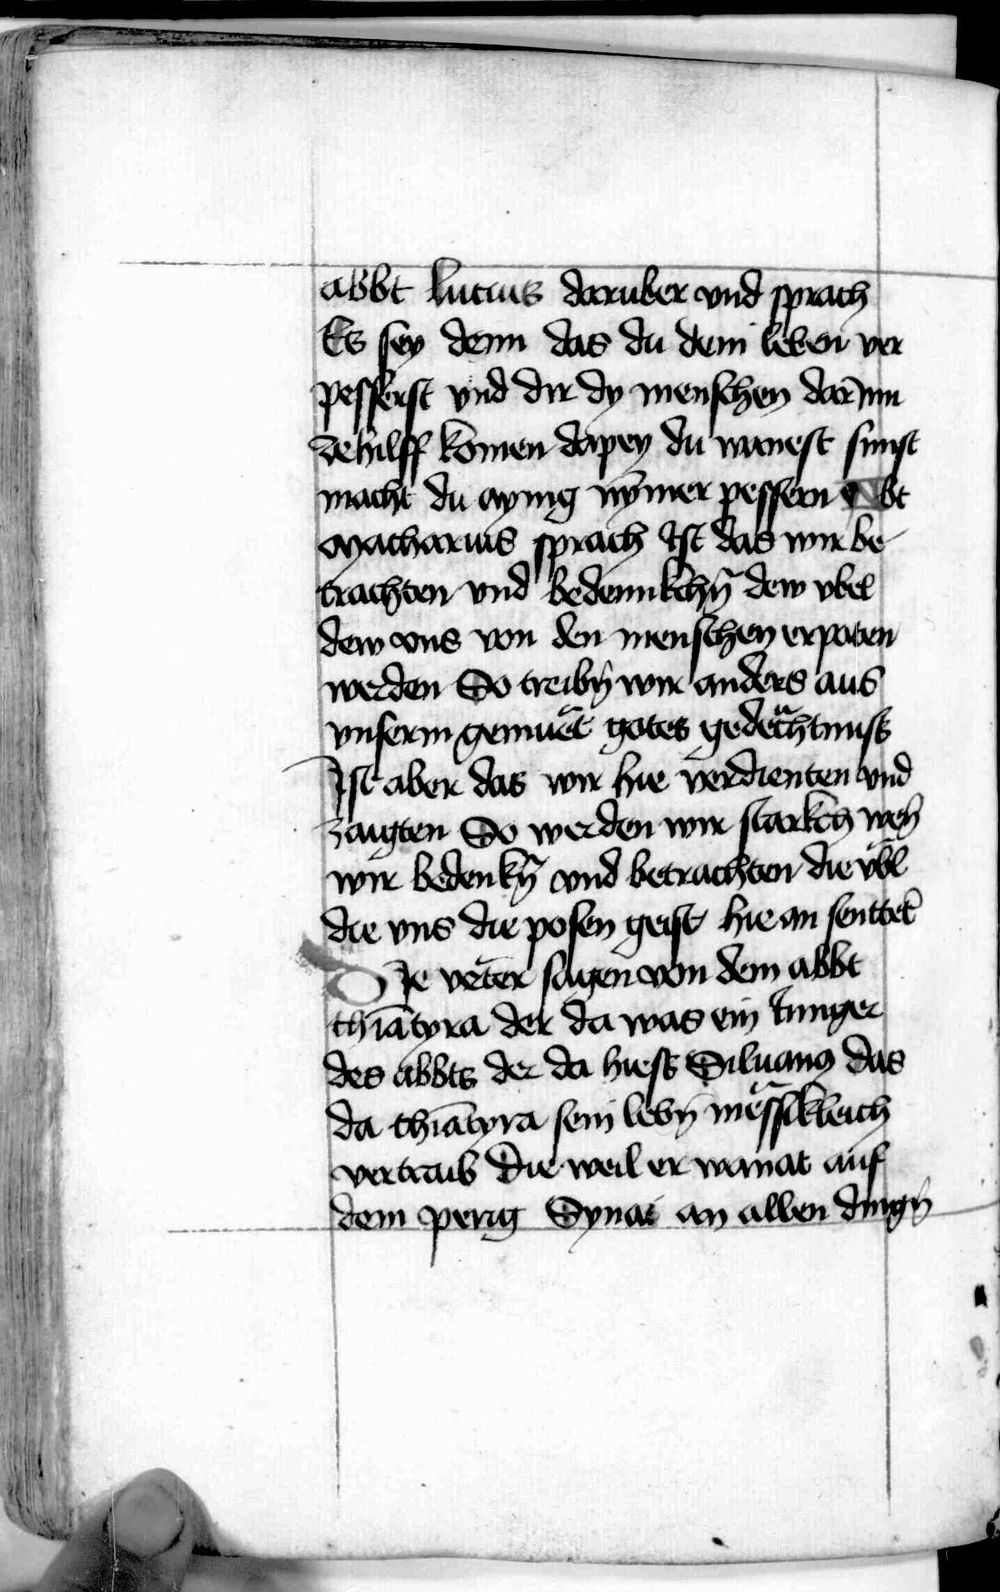 abbt lucius daruber vnd sprach
Es sey denn das du dein leben ver
pesserst vnd dir dy menschen dar Inn
zehilff komen dapey du wanest sunst
macht du aynig nymer pessern Abt
Macharius sprach Ist das wir be
trachten vnd bedennkchn̄ dew vbel
dew vns von den menschen erpoten
werden So treibn̄ wir anders aus
vnserm gemuͤet gotes gedëchtnuss
Ist aber das wir hie verdienten vnd
zaigten So werden wir starkch wen̄
wir bedenkn̄ vnd betrachten die vbl
die vns die posen geist hie an senttet
Die veter sagen von dem abbt
thiātyra der da was ein Iunger
des abbts der da hiess Siluang das
da thiātyra sein lebn̄ mëssikleich
vertraib Die weil er wanat auf
dem perig Synai an allen dingn̄